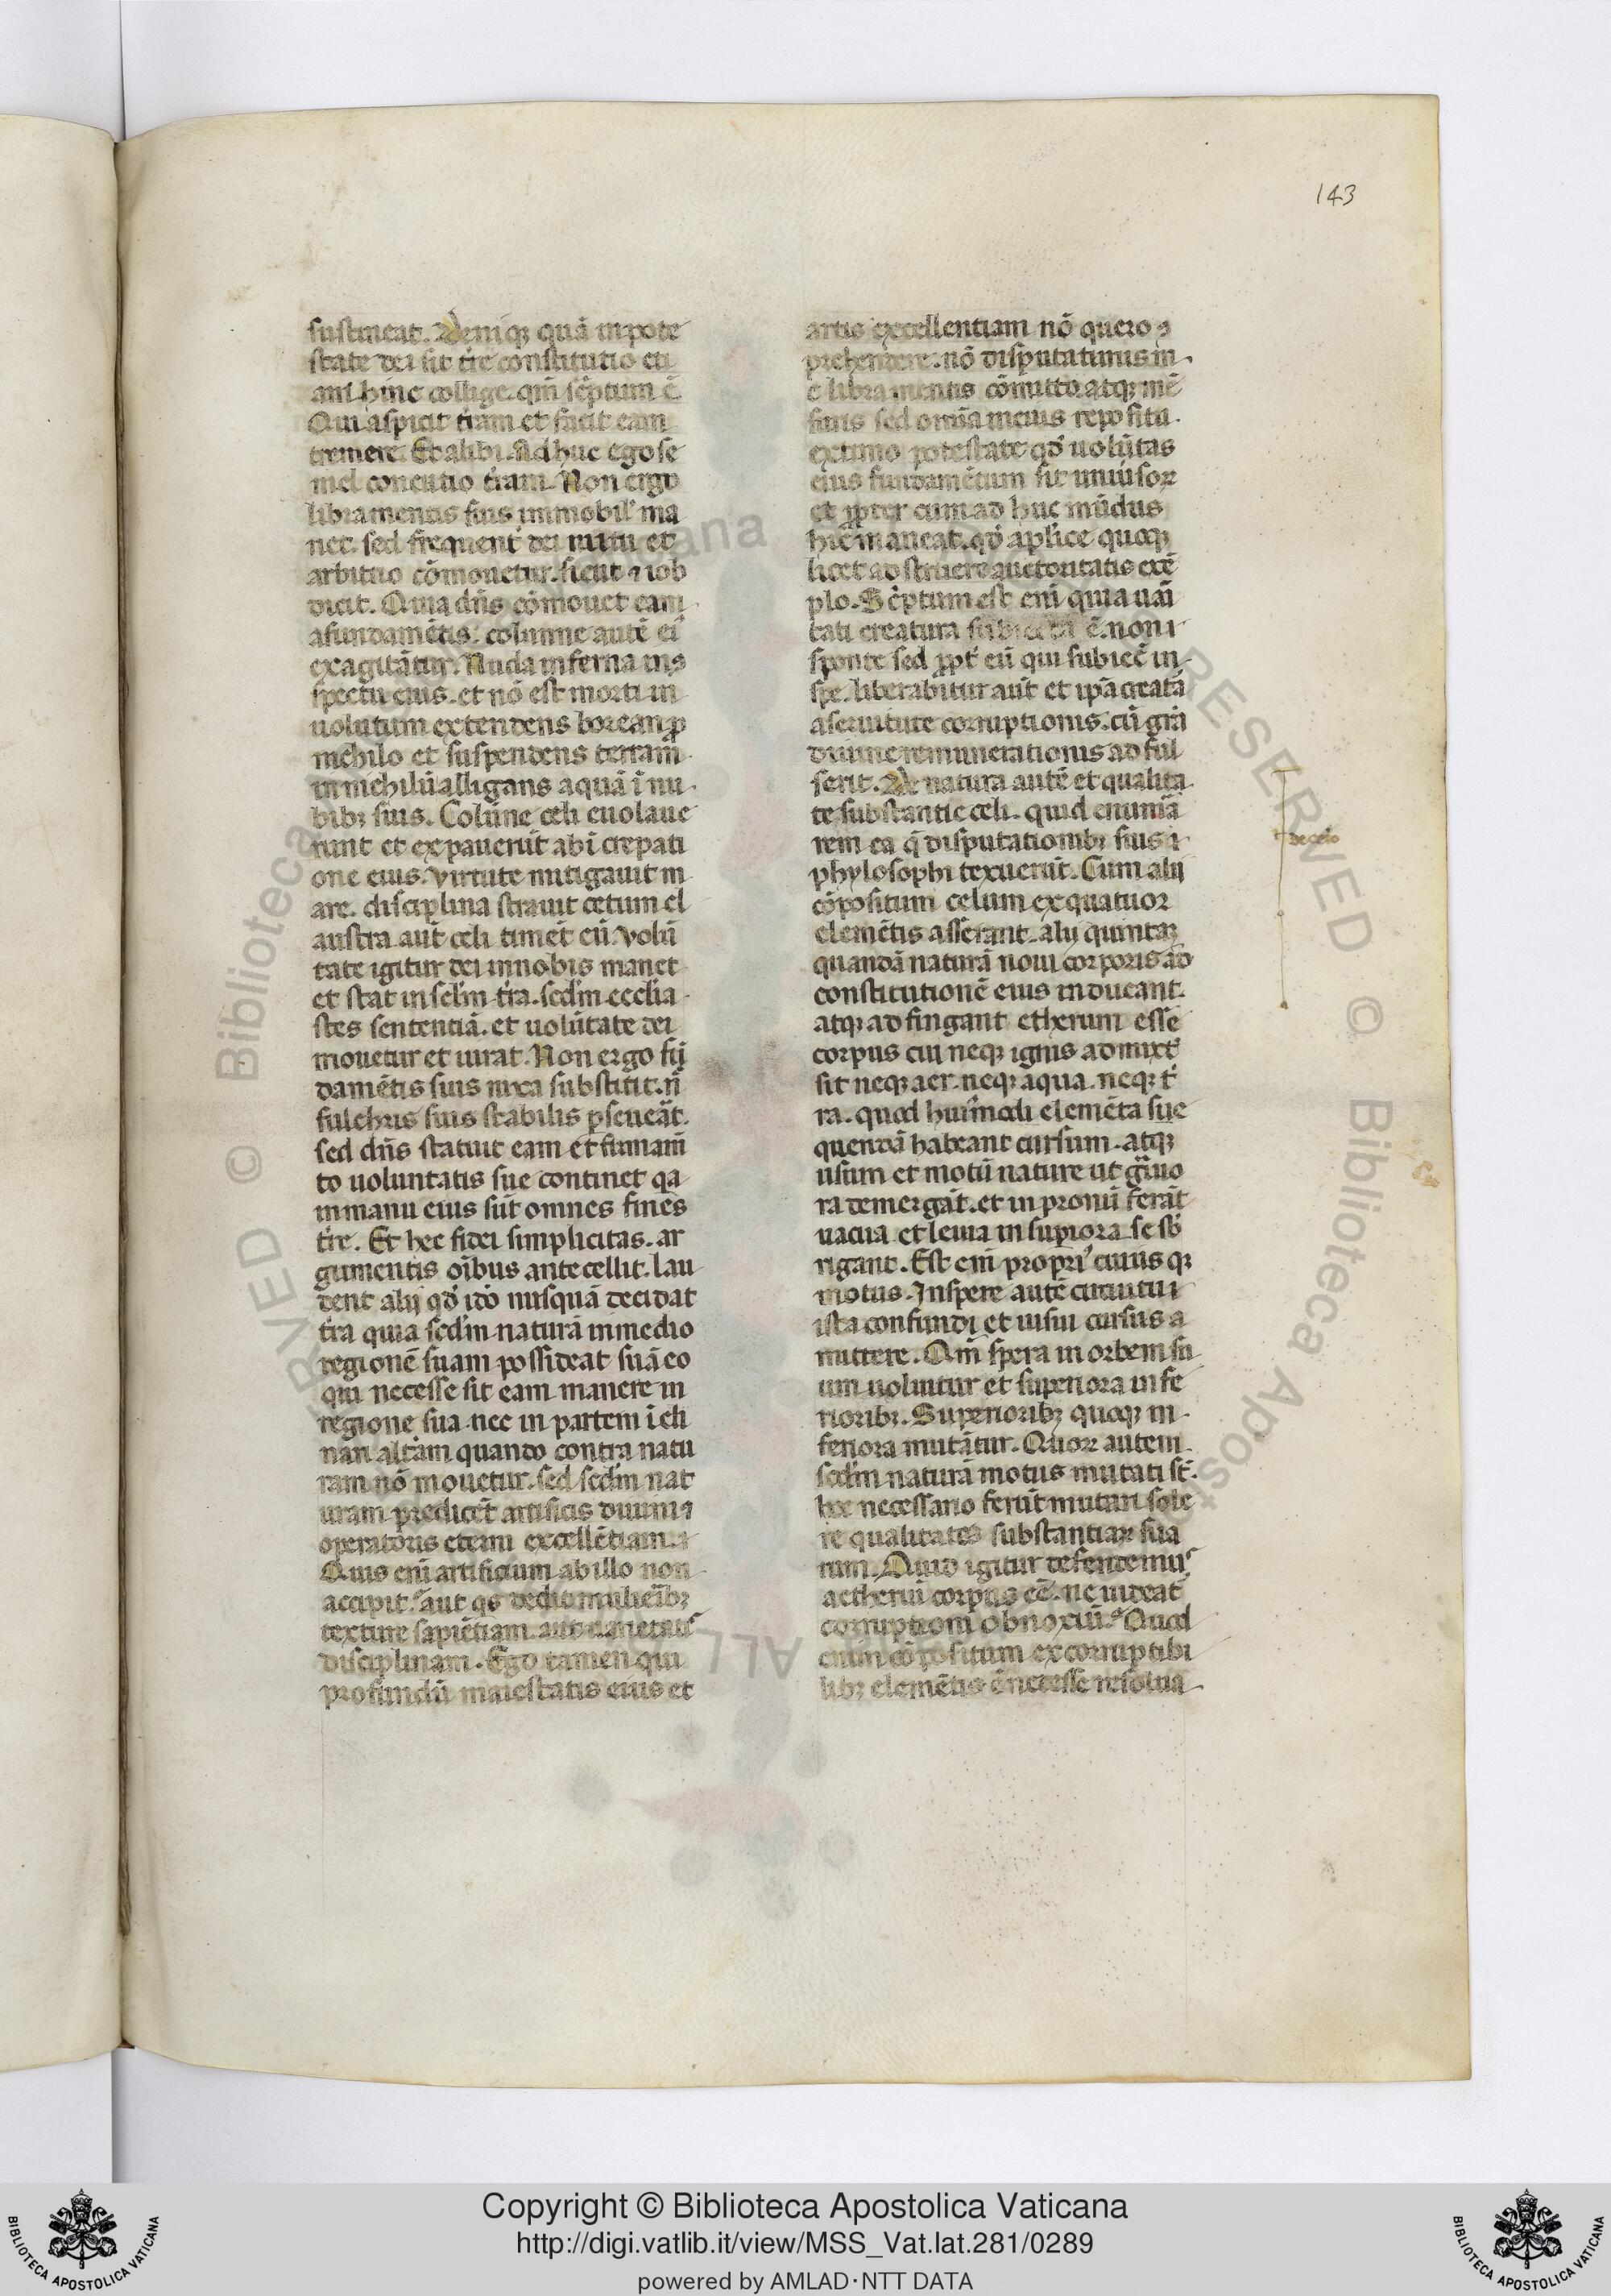 143
sustineat. Deniq; quā in pote
state dei sit tr̄e constitutio eti
am hinc collige. qm̄ sc̄ptum ē
Qui aspicit tr̄am et facit eam
tremere. Et alibi. Adhuc ego se
mel concutio tr̄am. Non ergo
libramentis suis immobil' ma
net. sed frequent' dei nutu et
arbitrio cōmouetur. sicut ⁊ iob
dicit. Quia dn̄s cōmouet eam
a fundamētis: columne autē ei'
exagitātur. Nuda inferna in
spectu eius. et nō est morti in
uolutum extendens borean p̱
nichilo et suspendens terram
in nichilū alligans aquā ī nu
bib; suis. Colūne celi euolaue
runt et expauerūt ab īcrepati
one eius. virtute mitigauit m
are. disciplina strauit cetum cl
austra aut celi timēt eū. volū
tate igitur dei in nobis manet
et stat in sc̄lm tr̄a. scd̄m ecclia
stes sententiā. et uolūtate dei
mouetur et nutat. Non ergo fū
damētis suis nixa substitit. n̄
fulchris suis stabilis p̱seueāt.
sed dn̄s statuit eam et firmam̄
to uoluntatis sue continet qa
in manu eius sūt omnes fines
tr̄e. Et hec fidei simplicitas. ar
gumentis oībus antecellit. lau
dent alij qd̄ ido nusquā decidat
tr̄a quia scd̄m naturā in medio
regionē suam possideat suā eo
qui necesse sit eam manere in
regione sua nec in partem īcli
nari alt̄am quando contra natu
ram nō mouetur. sed scd̄m nat
uram predicēt artificis diuini
operatoris eterni excellētiam.
Quis eni artificium ab illo non
accipit. aut qs dedit mulieb;
texture sapiētiam. aut uarietatis
disciplinam. Ego tamen qui
profundū maiestatis eius et
artis excellentiam nō quero ↄ
prehendere. nō disputatimis m
e libramentis cōmitto atq; mē
suris sed omīa in eius reposita
extimo potestate qd̄ uolūtas
eius fundamētum sit uniuisoꝝ
et ꝓpter eum ad huc mūdus
hic maneat. qd̄ aplice quoq;
licet ad struere auctoritatis exē
plo. Sc̄ptum est enī quia uāi
tati creatura subiecta ē. non
sponte sed ꝓpt' eū qui subiec̄ in
spe. liberabitur aūt et ip̄a creatā
a seruitute corruptionis. cū grā
diuine remunerationis ad ful
serit. De natura autē et qualita
te substantie celi. quid enumā
rem ea q̄ disputationib; suis
phylosophi texuerūt. Cum alij
cōpositum celum ex quatuor
elemētis asserant. alij quintaꝝ
quandā naturā noui corporis ad
constitutionē eius inducant.
atq; ad fingant etherum esse
corpus cui neq; ignis admixt'
sit neq; aer. neq; aqua. neq; t'
ra. quod huīmodi elemēta sue
quendā habeant cursum. atq;
usum et motū nature ut g̃uio
ra demergāt. et in pronū ferāt
uacua et leuia in supiora se sb'
rigant. Est enī propri' cuius q;
motus. In spere autē circuitu
ista confundi et uisui cursus a
mittere. Qm̄ spera in orbem su
um uoluitur et superiora infe
riorib;. Superiorib; quoq; in
feriora mutātur. Quoꝝ autem
scd̄m naturā motus mutati st̄.
hec necessario ferūt mutari sole
re qualitates substantiaꝝ sua
rum. Quid igitur defendemus
aetherū corpus eē. ne uideat'
corruptioni obnoxiū. Quod
enim cōpositum ex corruptibi
lib; elemētis ē necesse resolua
de celo
Copyright © Biblioteca Apostolica Vaticana
http://digi.vatlib.it/view/MSS_Vat.lat.281/0289
powered by AMLAD·NTT DATA